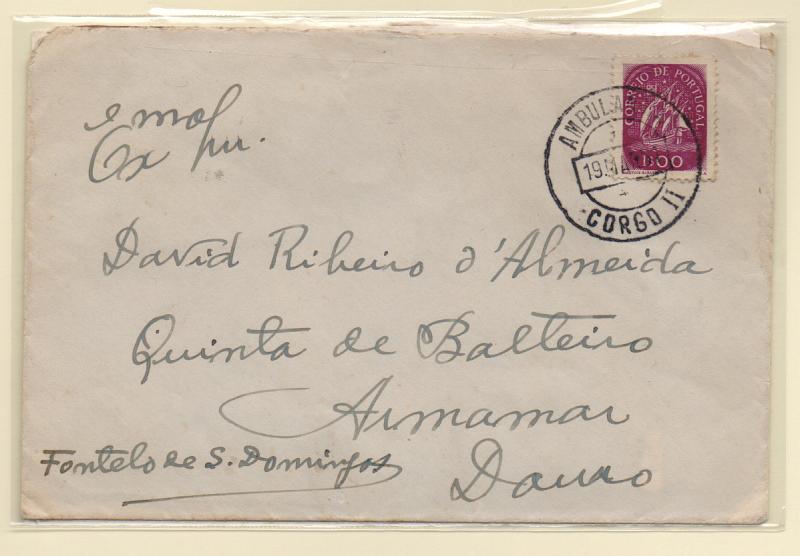 Exmo Snr.
CORREIO DE PORTUGAL
1$00
AMBULA
19 MA
CORGO II
David Ribeiro d'Almeida
Quinta de Balteiro
Armamar
Fontelo de S. Domingos
Douro